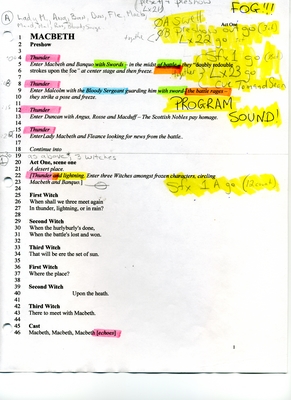 preshow
Lx 21
FOG!!!
A
Act One
MACBETH
Preshow
Lx23
4 Thunder
5 Enter Macbeth and Banquo with Swords - in the midst of battle - they "doubly redouble
6 strokes upon the foe" at center stage and then freeze.
Lx23 go
8 Thunder
9 Enter Malcolm with the Bloody Sergeant guarding him with sword - the battle rages -
10 they strike a pose and freeze.
PROGRAM
SOUND!
12 Thunder
13 Enter Duncan with Angus, Rosse and Macduff - The Scottish Nobles pay homage.
15 Thunder
16 EnterLady Macbeth and Fleance looking for news from the battle..
18 Continue into
19 as above + 3 witches
20 Act One, scene one
21 A desert place.
22 [Thunder and lightning. Enter three Witches amongst frozen characters, circling
23 Macbeth and Banquo.]
Sdx 1A go
25 First Witch
26 When shall we three meet again
27 In thunder, lightning, or in rain?
29 Second Witch
30 When the hurlyburly's done,
31 When the battle's lost and won.
33 Third Witch
34 That will be ere the set of sun.
36 First Witch
37 Where the place?
39 Second Witch
40 Upon the heath.
42 Third Witch
43 There to meet with Macbeth.
45 Cast
46 Macbeth, Macbeth, Macbeth [echoes]
1